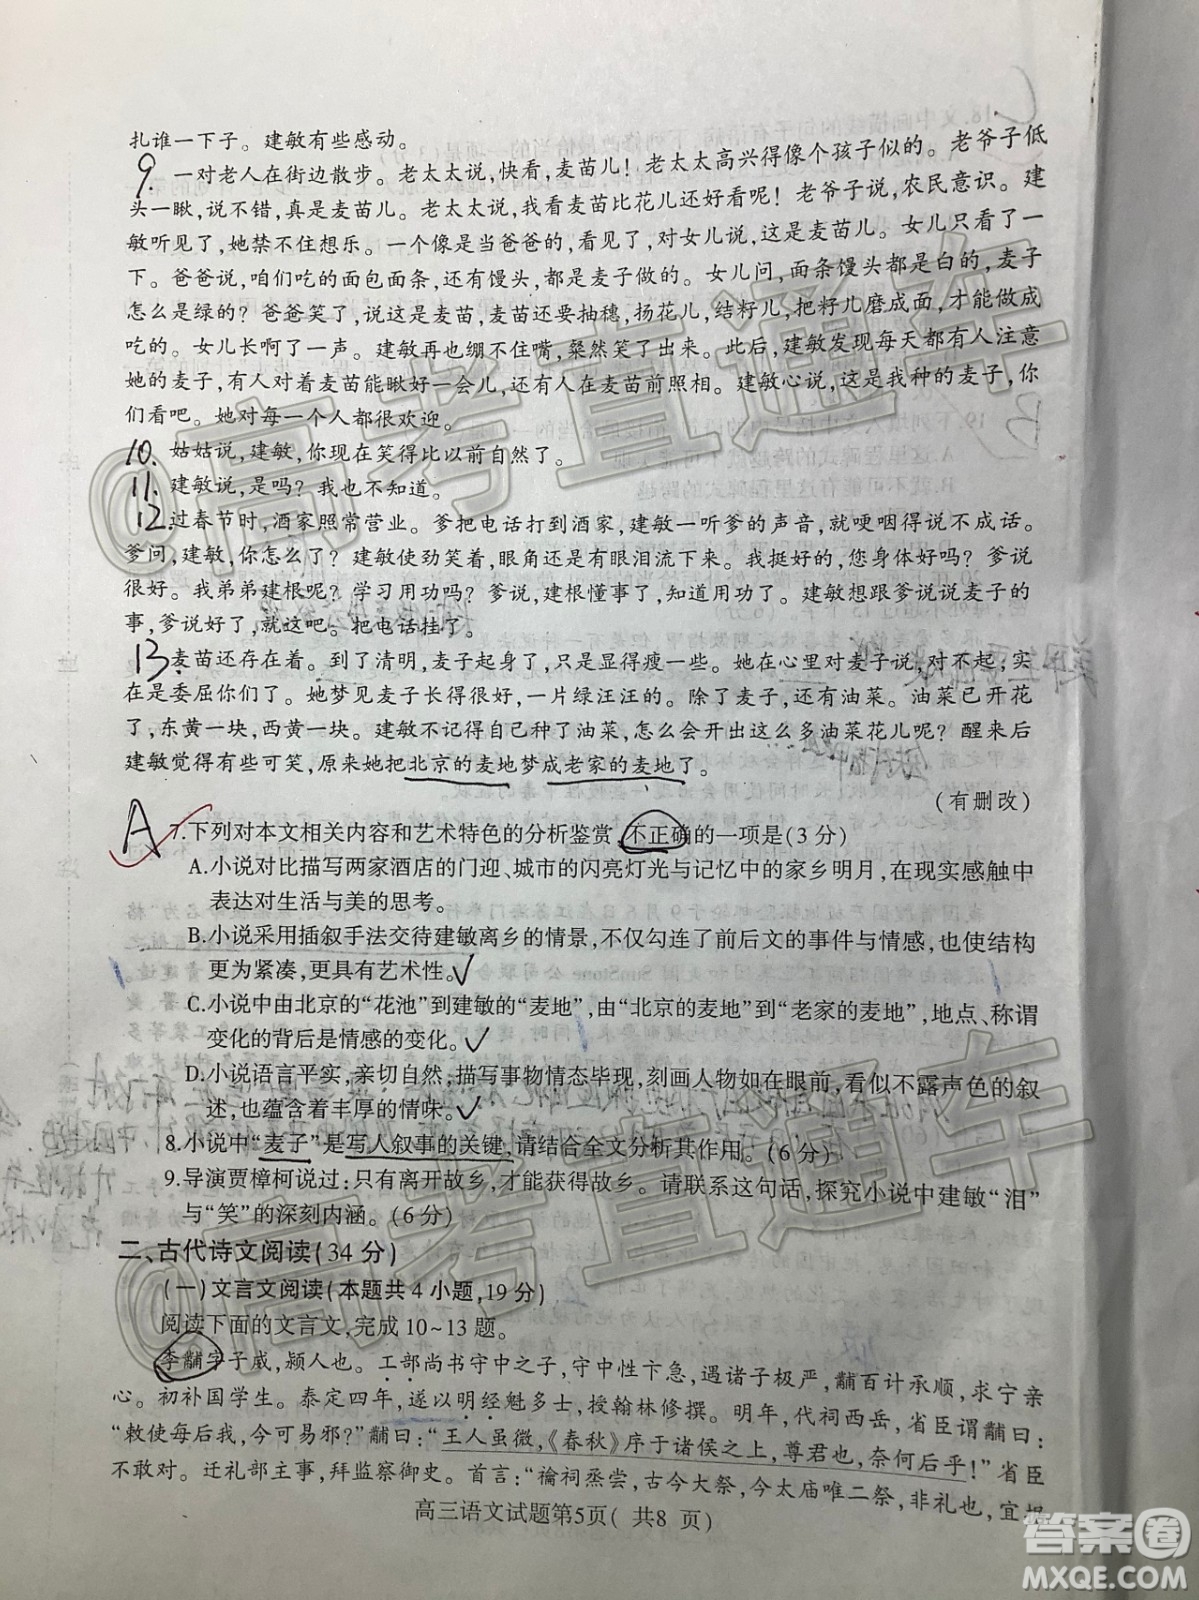 扎谁一下子。建敏有些感动。
9. 一对老人在街边散步。老太太说,快看,麦苗儿!老太太高兴得像个孩子似的。老爷子低
头一瞅,说不错,真是麦苗儿。老太太说,我看麦苗比花儿还好看呢!老爷子说,农民意识。建
敏听见了,她禁不住想乐。一个像是当爸爸的,看见了,对女儿说,这是麦苗儿。女儿只看了一
下。爸爸说,咱们吃的面包面条,还有馒头,都是麦子做的。女儿问,面条馒头都是白的,麦子
怎么是绿的?爸爸笑了,说这是麦苗,麦苗还要抽穗,扬花儿,结籽儿,把籽儿磨成面,才能做成
吃的。女儿长啊了一声。建敏再也绷不住嘴,粲然笑了出来。此后,建敏发现每天都有人注意
她的麦子,有人对着麦苗能瞅好一会儿,还有人在麦苗前照相。建敏心说,这是我种的麦子,你
们看吧。她对每一个人都很欢迎。
10. 姑姑说,建敏,你现在笑得比以前自然了。
11. 建敏说,是吗?我也不知道。
12. 过春节时,酒家照常营业。爹把电话打到酒家,建敏一听爹的声音,就哽咽得说不成话。
爹问,建敏,你怎么了?建敏使劲笑着,眼角还是有眼泪流下来。我挺好的,您身体好吗?爹说
很好。我弟弟建根呢?学习用功吗?爹说,建根懂事了,知道用功了。建敏想跟爹说说麦子的
事,爹说好了,就这吧。把电话挂了。
13 麦苗还存在着。到了清明,麦子起身了,只是显得瘦一些。她在心里对麦子说,对不起,实
在是委屈你们了。她梦见麦子长得很好,一片绿汪汪的。除了麦子,还有油菜。油菜已开花
了,东黄一块,西黄一块。建敏不记得自己种了油菜,怎么会开出这么多油菜花儿呢?醒来后
建敏觉得有些可笑,原来她把北京的麦地梦成老家的麦地了。
(有删改)
A 7.下列对本文相关内容和艺术特色的分析鉴赏,不正确的一项是(3分)
A.小说对比描写两家酒店的门迎、城市的闪亮灯光与记忆中的家乡明月,在现实感触中
表达对生活与美的思考。
B.小说采用插叙手法交待建敏离乡的情景,不仅勾连了前后文的事件与情感,也使结构
更为紧凑,更具有艺术性。
C.小说中由北京的“花池”到建敏的“麦地”,由“北京的麦地”到“老家的麦地”,地点、称谓
变化的背后是情感的变化。
D.小说语言平实,亲切自然,描写事物情态毕现,刻画人物如在眼前,看似不露声色的叙
述,也蕴含着丰厚的情味。
8.小说中“麦子”是写人叙事的关键,请结合全文分析其作用。(6分)
9.导演贾樟柯说过:只有离开故乡,才能获得故乡。请联系这句话,探究小说中建敏“泪”
与“笑”的深刻内涵。(6分)
二、古代诗文阅读(34分)
(一)文言文阅读(本题共4小题,19分)
阅读下面的文言文,完成10~13题。
李黼字子威,颍人也。工部尚书守中之子,守中性卞急,遇诸子极严,黼百计承顺,求宁亲
心。初补国学生。泰定四年,遂以明经魁多士,授翰林修撰。明年,代祠西岳,省臣谓黼曰:
“敕使每后我,今可易邪?”黼曰:“王人虽微,《春秋》序于诸侯之上,尊君也,奈何后乎!”省臣
不敢对。迁礼部主事,拜监察御史。首言:“禴祠烝尝,古今大祭,今太庙唯二祭,非礼也,宜据
高三语文试题第5页( 共8 页)
@高考直通车
@高考直通车
答案圈
MXQE.COM